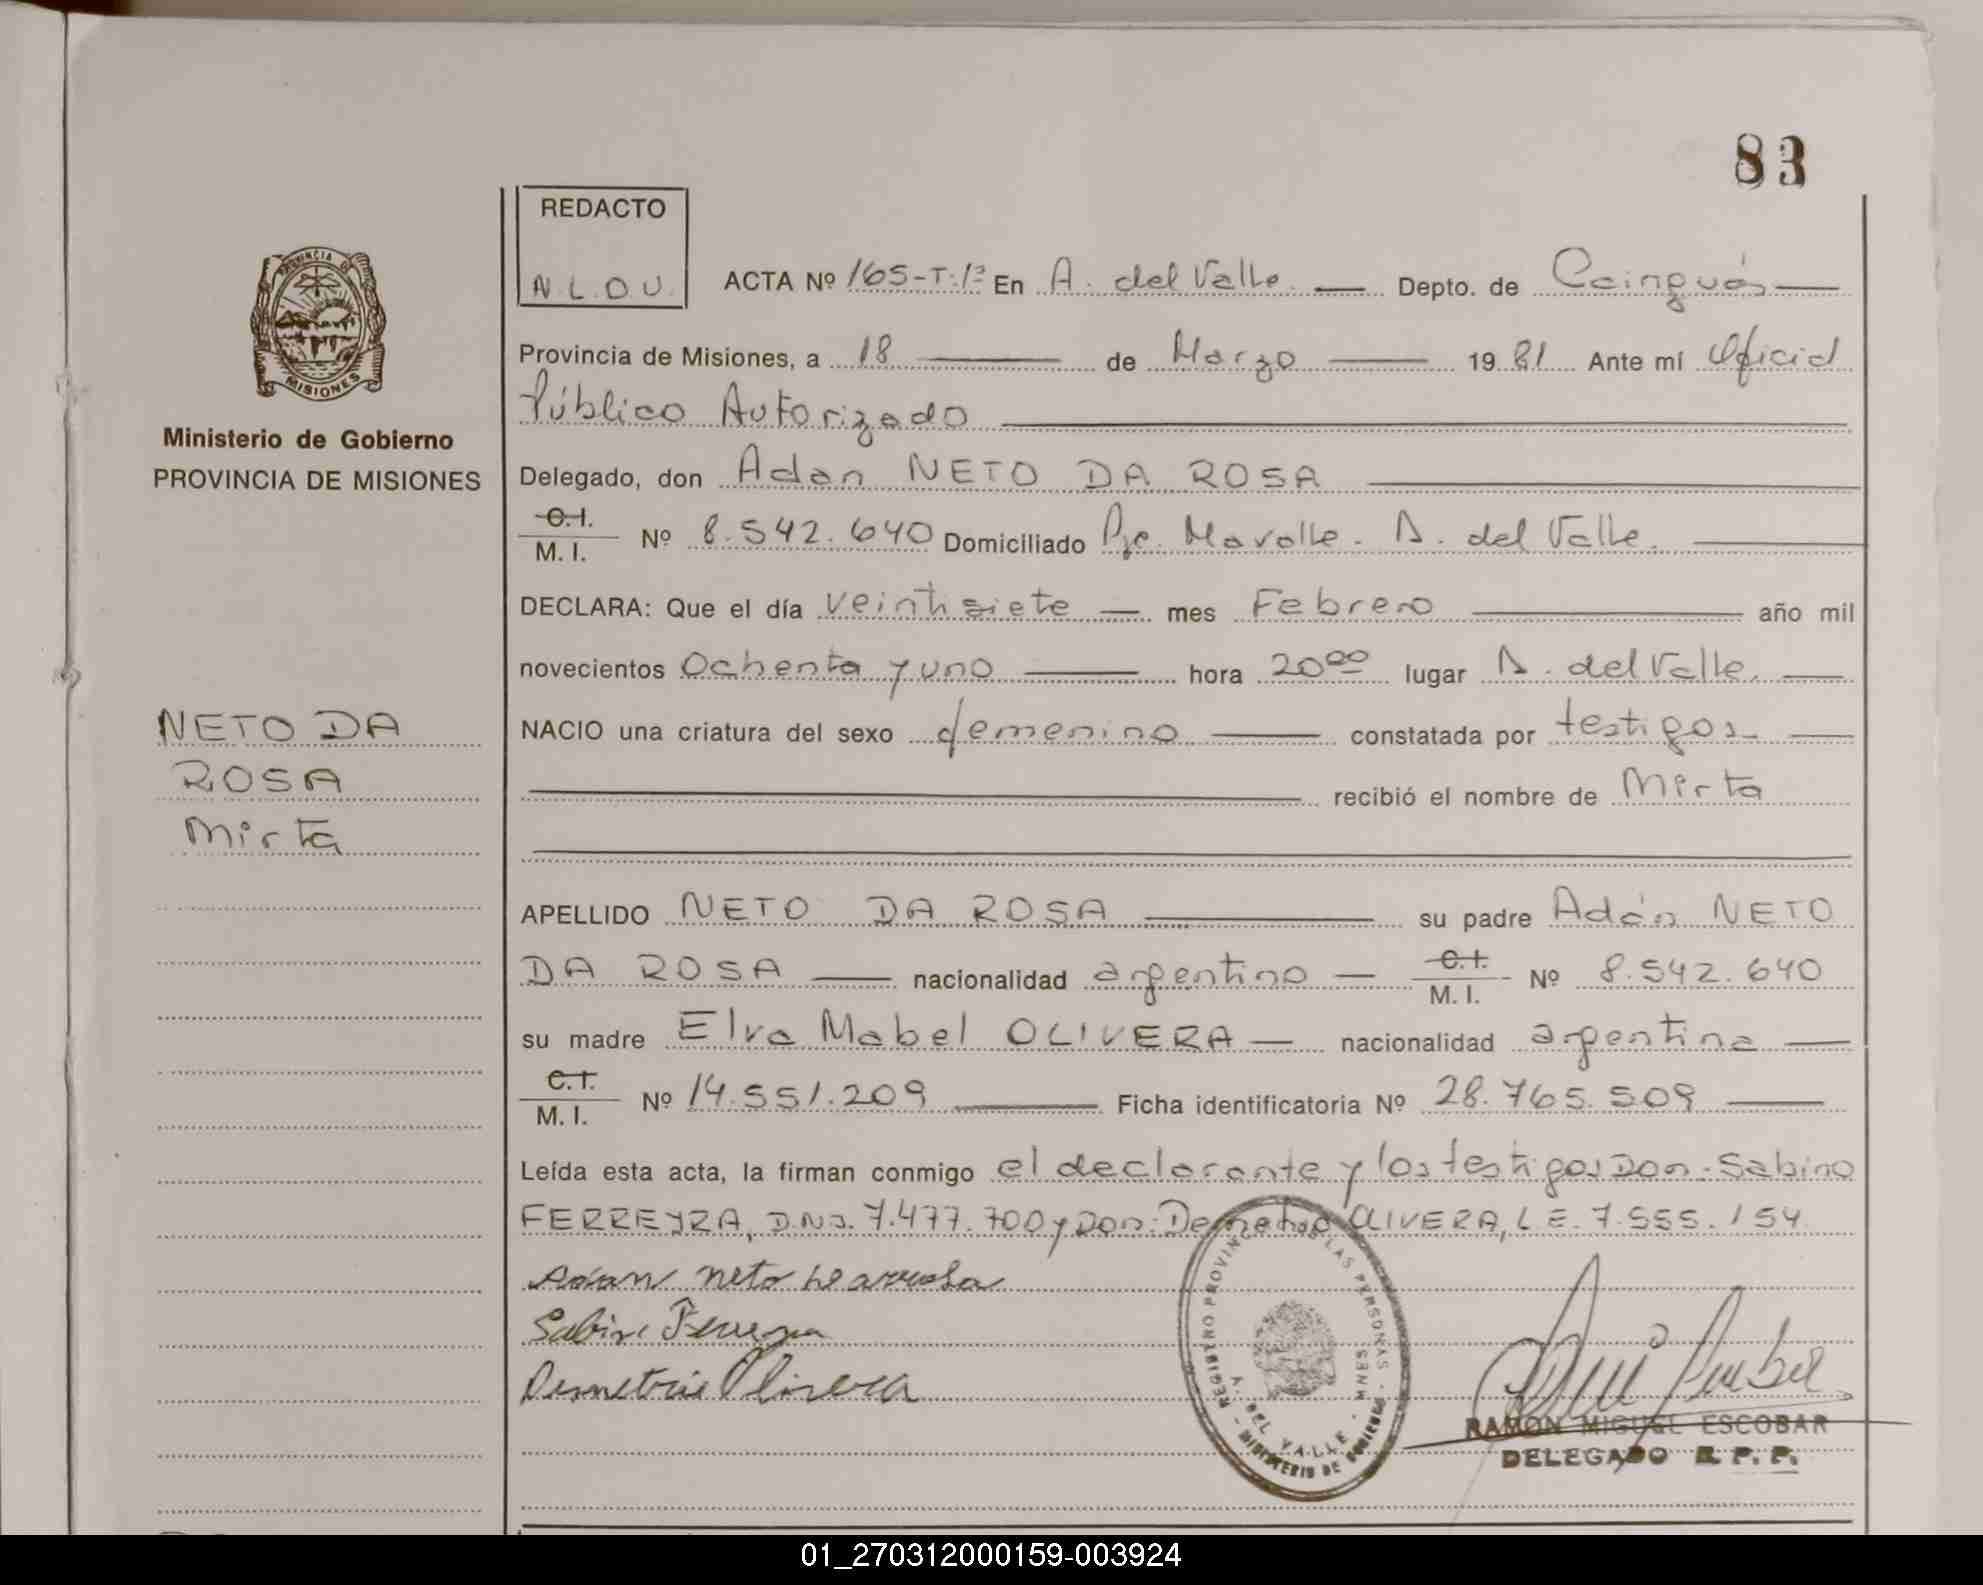 83
REDACTO
N.L.O.U.
ACTA Nº 165-T:1º En A. del Valle. Depto. de Cainguás
Provincia de Misiones, a 18 de Marzo 1981 Ante mí Oficial
Público Autorizado
Delegado, don Adan NETO DA ROSA
C.I.
M.I. Nº 8.542.640 Domiciliado A. del Valle.
DECLARA: Que el día veintisiete mes Febrero año mil
novecientos Ochenta y uno hora 20⁰⁰ lugar A. del Valle.
NACIO una criatura del sexo femenino constatada por testigos
recibió el nombre de Mirta
APELLIDO NETO DA ROSA su padre Adán NETO
DA ROSA nacionalidad argentino C.I.
M.I. Nº 8.542.640
su madre Elva Mabel OLIVERA nacionalidad argentina
C.I.
M.I. Nº 14.551.209 Ficha identificatoria Nº 28.765.509
Leída esta acta, la firman conmigo el declarante y los testigos Don: Sabino
FERREYRA, D.N.I. 7.477.700 y Don: Demetrio OLIVERA, L.E. 7.555.154
Adan neto
Sabino Ferreyra
Demetrio Olivera
REGISTRO PROVINCIAL DE LAS PERSONAS
A. DEL VALLE - MNES
MINISTERIO DE GOBIERNO
RAMON MIGUEL ESCOBAR
DELEGADO R.P.P.
PROVINCIA DE
MISIONES
Ministerio de Gobierno
PROVINCIA DE MISIONES
NETO DA
ROSA
Mirta
01_270312000159-003924